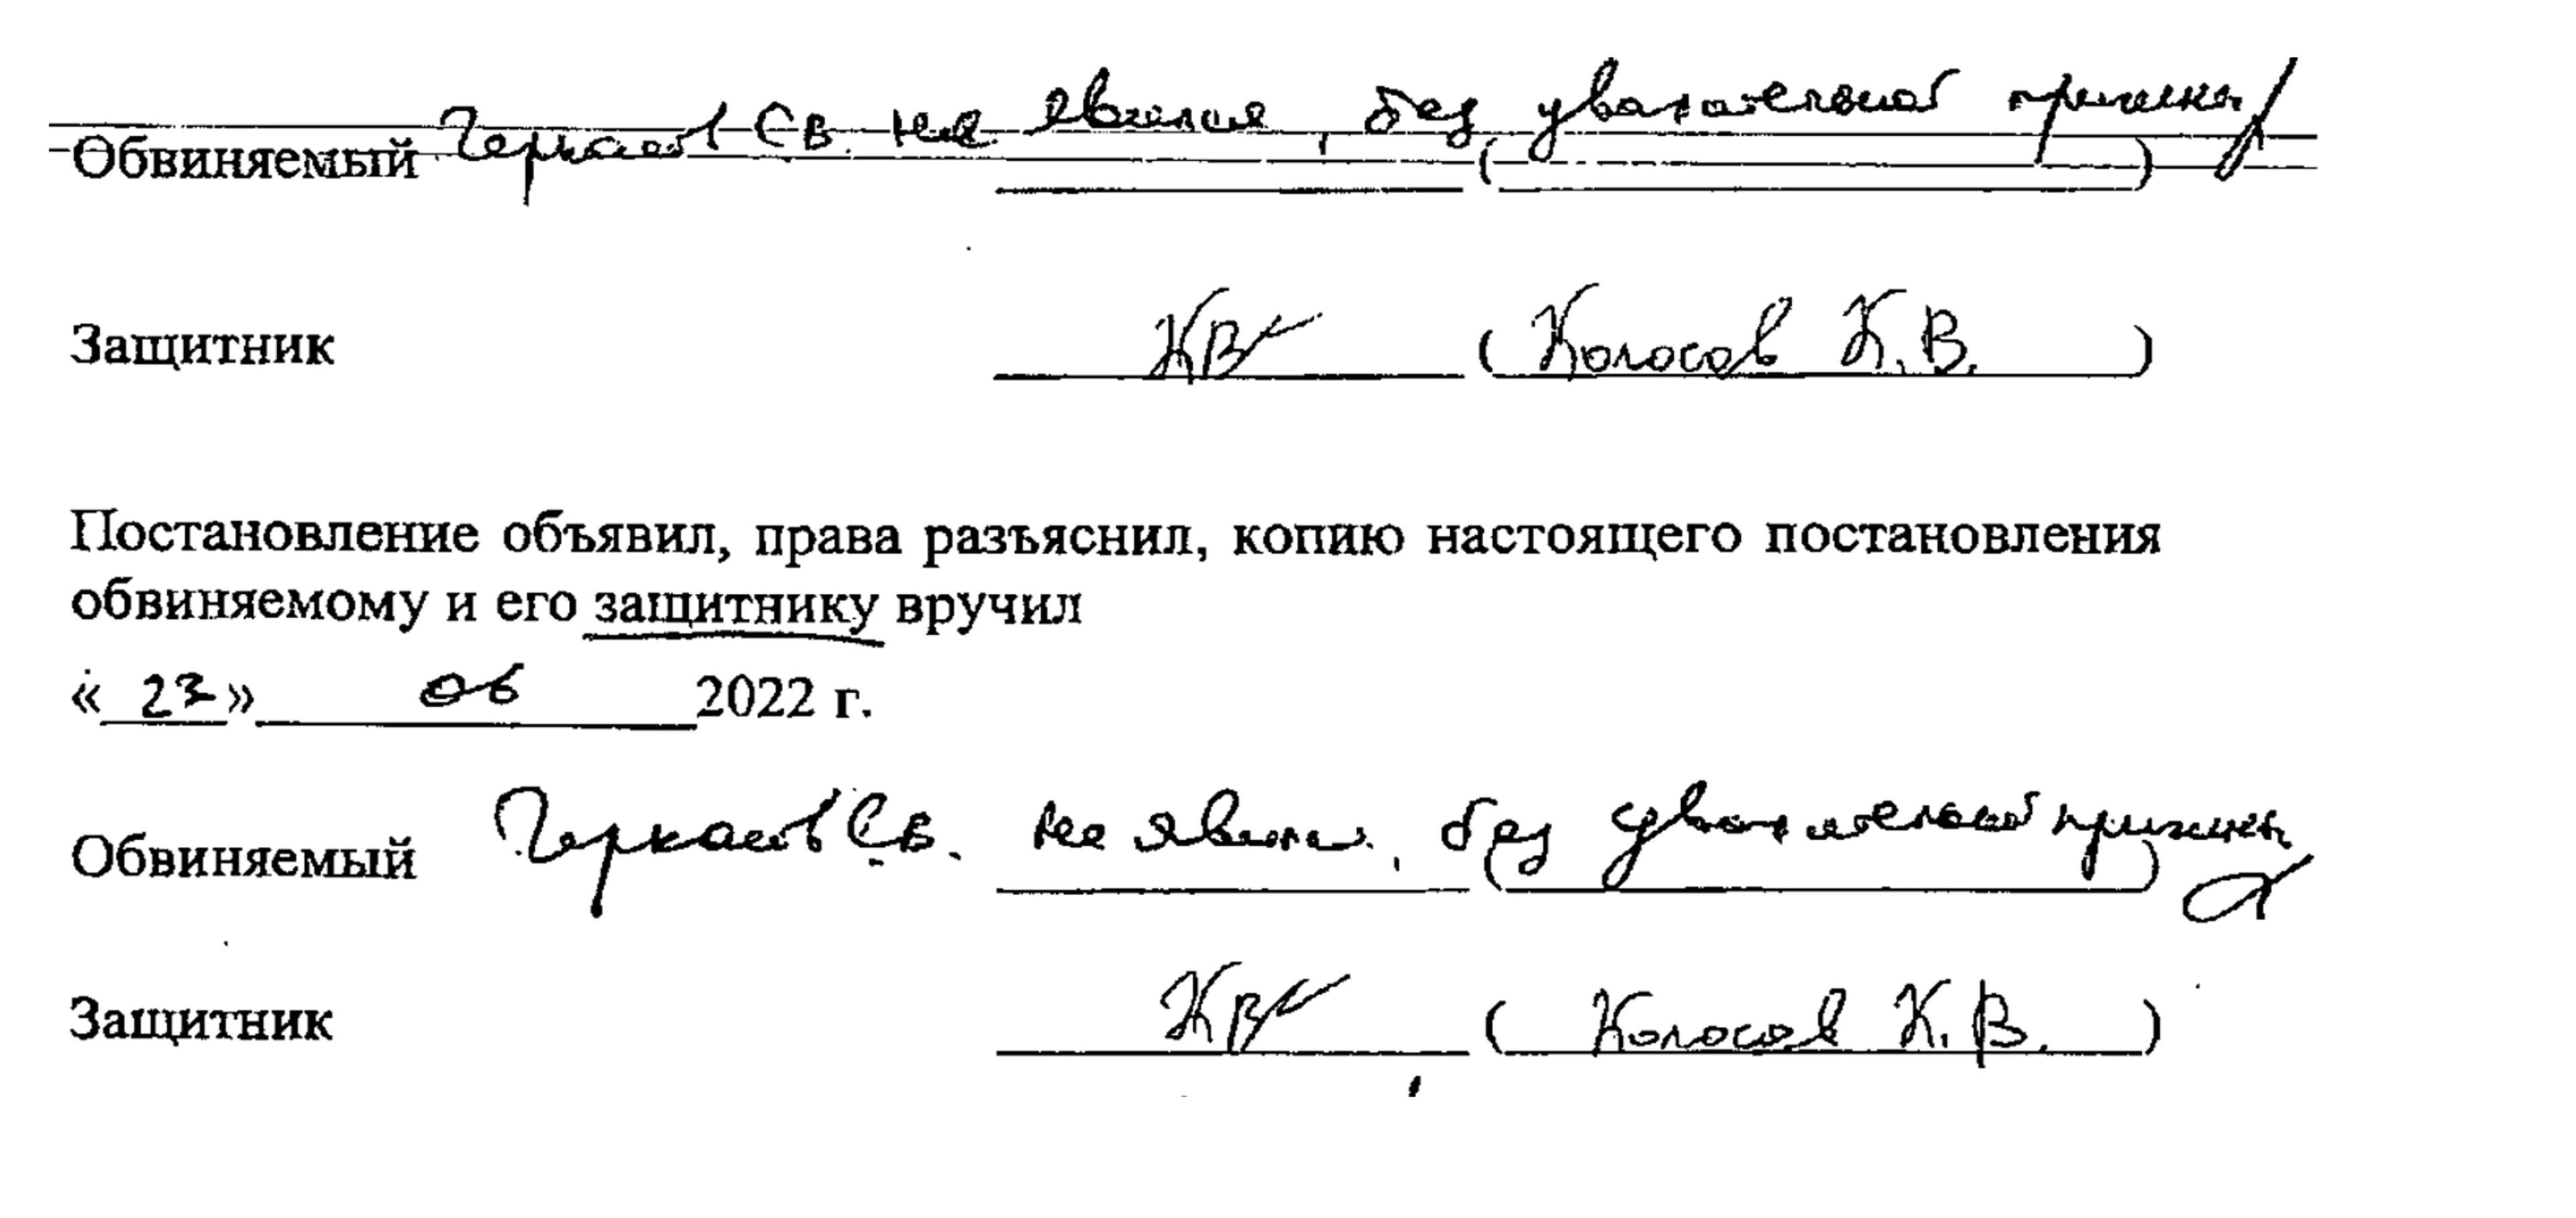 Обвиняемый Черкасов С.В. не явился, без уважительной причины
Защитник КВ (Колосов К.В.)
Постановление объявил, права разъяснил, копию настоящего постановления
обвиняемому и его защитнику вручил
«23» 06 2022 г.
Обвиняемый Черкасов С.В. не явился, без уважительной причины
Защитник КВ (Колосов К.В.)